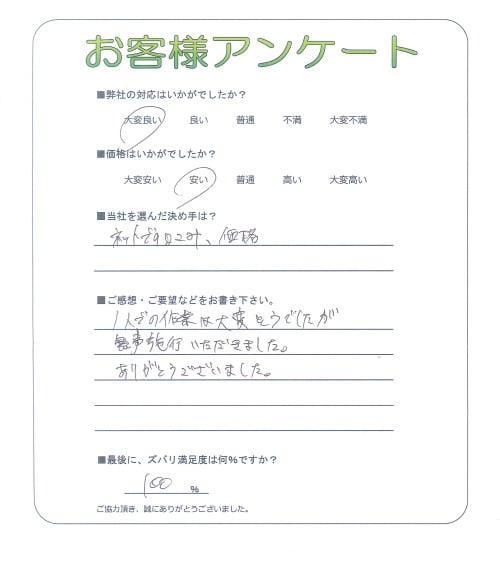 お客様アンケート
■弊社の対応はいかがでしたか？
大変良い 良い 普通 不満 大変不満
■価格はいかがでしたか？
大変安い 安い 普通 高い 大変高い
■当社を選んだ決め手は？
ネットで口コミ、価格
■ご感想・ご要望などをお書き下さい。
1人での作業は大変そうでしたが
無事施行いただきました。
ありがとうございました。
■最後に、ズバリ満足度は何%ですか？
100 %
ご協力頂き、誠にありがとうございました。